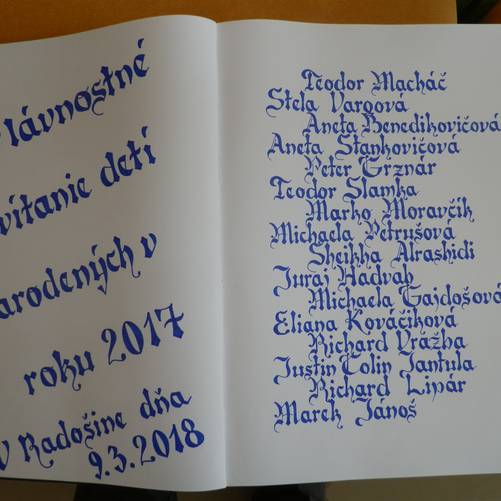 Slávnostné
vítanie detí
narodených v
roku 2017
V Radošine dňa
9.3.2018
Teodor Macháč
Stela Vargová
Aneta Benedikovičová
Aneta Stankovičová
Peter Grznár
Teodor Slamka
Marko Moravčík
Michaela Petrušová
Sheikha Alrashidi
Juraj Hadvab
Michaela Gajdošová
Eliana Kováčiková
Richard Vražba
Justin Colin Jantula
Richard Lipár
Marek Jánoš